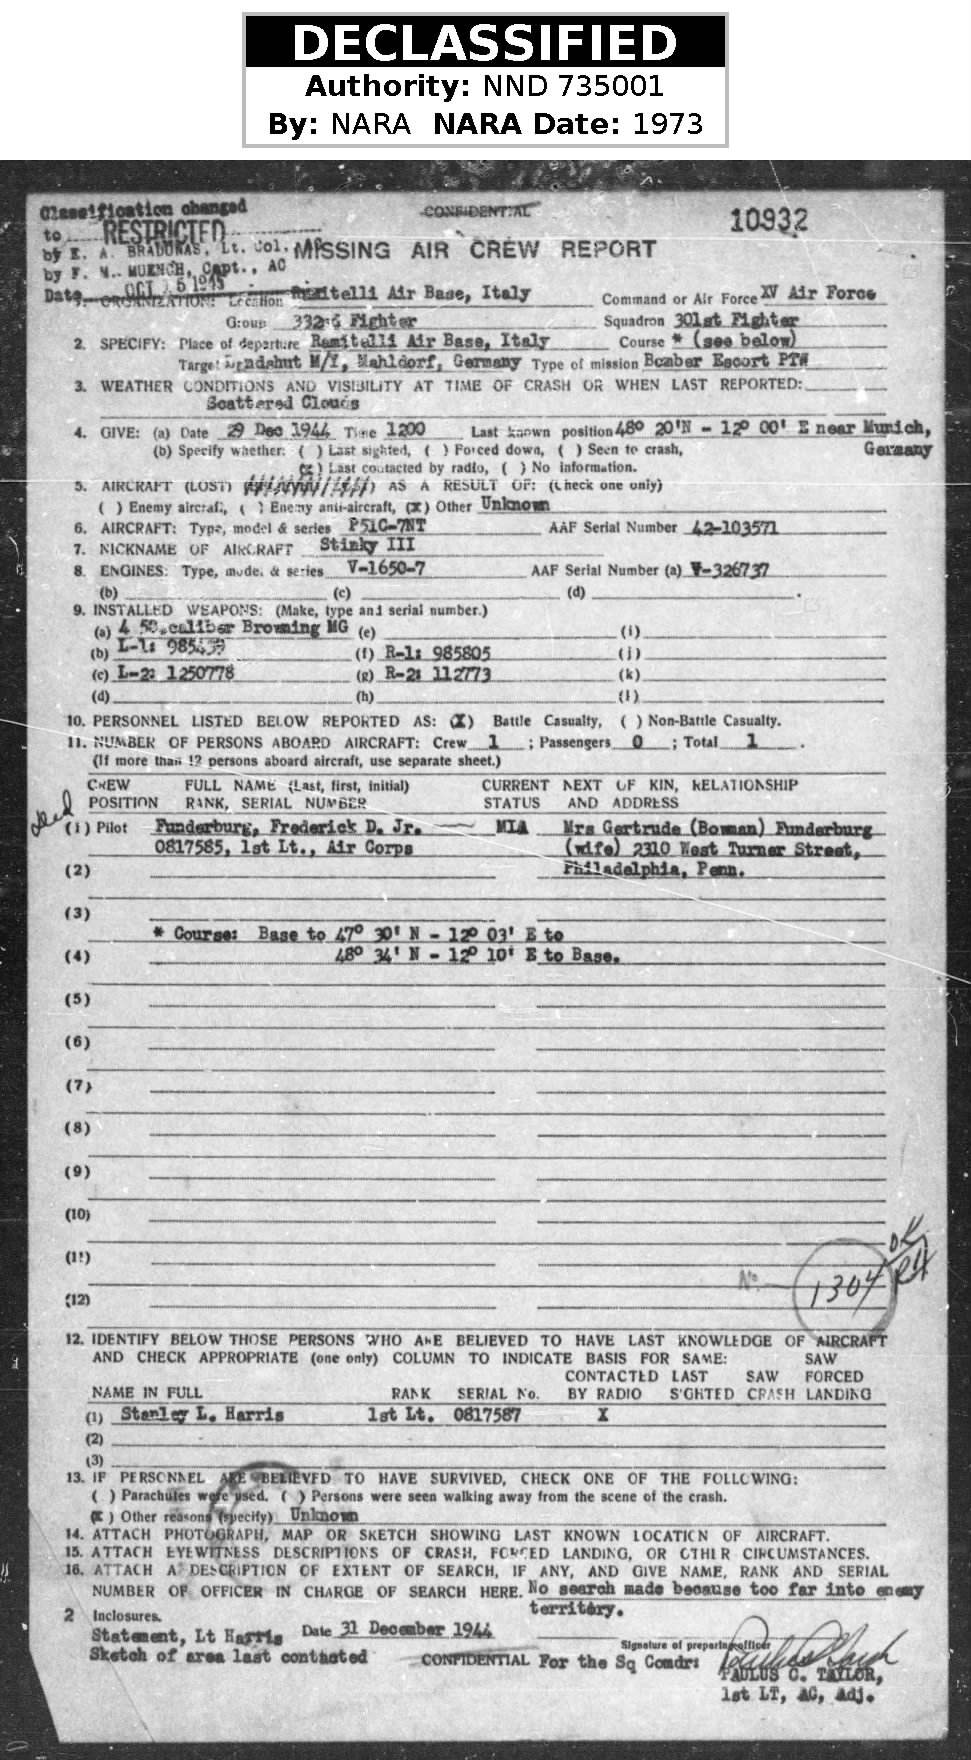 DECLASSIFIED
Authority: NND 735001
By: NARA NARA Date: 1973
Classification changed
to RESTRICTED
by E. A. BRADUNAS, Lt. Col., AC
by F. M. MUENCH, Capt., AC
Date OCT 15 1945
CONFIDENTIAL
10932
MISSING AIR CREW REPORT
1. ORGANIZATION: Location Ramitelli Air Base, Italy Command or Air Force XV Air Force
Group 332nd Fighter Squadron 301st Fighter
2. SPECIFY: Place of departure Ramitelli Air Base, Italy Course * (see below)
Target Landshut M/Y, Mahldorf, Germany Type of mission Bomber Escort PTW
3. WEATHER CONDITIONS AND VISIBILITY AT TIME OF CRASH OR WHEN LAST REPORTED:
Scattered Clouds
4. GIVE: (a) Date 29 Dec 1944 Time 1200 Last known position 48° 20'N - 12° 00' E near Munich,
Germany
(b) Specify whether: ( ) Last sighted, ( ) Forced down, ( ) Seen to crash,
(x) Last contacted by radio, ( ) No information.
5. AIRCRAFT (LOST) ) AS A RESULT OF: (Check one only)
( ) Enemy aircraft, ( ) Enemy anti-aircraft, (x) Other Unknown
6. AIRCRAFT: Type, model & series P51C-7NT AAF Serial Number 42-103571
7. NICKNAME OF AIRCRAFT Stinky III
8. ENGINES: Type, model & series V-1650-7 AAF Serial Number (a) V-326737
(b) (c) (d) .
9. INSTALLED WEAPONS: (Make, type and serial number.)
(a) 4 50.caliber Browning MG (e) (i)
(b) L-1: (f) R-1: 985805 (j)
(c) L-2: 1250778 (g) R-2: 112773 (k)
(d) (h) (l)
10. PERSONNEL LISTED BELOW REPORTED AS: (X) Battle Casualty, ( ) Non-Battle Casualty.
11. NUMBER OF PERSONS ABOARD AIRCRAFT: Crew 1 ; Passengers 0 ; Total 1 .
(If more than 12 persons aboard aircraft, use separate sheet.)
CREW FULL NAME (Last, first, initial) CURRENT NEXT OF KIN, RELATIONSHIP
POSITION RANK, SERIAL NUMBER STATUS AND ADDRESS
Ded
(1) Pilot Funderburg, Frederick D. Jr. MIA Mrs Gertrude (Bowman) Funderburg
0817585, 1st Lt., Air Corps (wife) 2310 West Turner Street,
(2) Philadelphia, Penn.
(3)
* Course: Base to 47° 30' N - 12° 03' E to
(4) 48° 34' N - 12° 10' E to Base.
(5)
(6)
(7)
(8)
(9)
(10)
(11)
OK
No. 1304 RH
(12)
12. IDENTIFY BELOW THOSE PERSONS WHO ARE BELIEVED TO HAVE LAST KNOWLEDGE OF AIRCRAFT
AND CHECK APPROPRIATE (one only) COLUMN TO INDICATE BASIS FOR SAME: SAW
CONTACTED LAST SAW FORCED
NAME IN FULL RANK SERIAL No. BY RADIO SIGHTED CRASH LANDING
(1) Stanley L. Harris 1st Lt. 0817587 X
(2)
(3)
13. IF PERSONNEL ARE BELIEVED TO HAVE SURVIVED, CHECK ONE OF THE FOLLOWING:
( ) Parachutes were used. ( ) Persons were seen walking away from the scene of the crash.
(x) Other reasons (specify) Unknown
14. ATTACH PHOTOGRAPH, MAP OR SKETCH SHOWING LAST KNOWN LOCATION OF AIRCRAFT.
15. ATTACH EYEWITNESS DESCRIPTIONS OF CRASH, FORCED LANDING, OR OTHER CIRCUMSTANCES.
16. ATTACH A DESCRIPTION OF EXTENT OF SEARCH, IF ANY, AND GIVE NAME, RANK AND SERIAL
NUMBER OF OFFICER IN CHARGE OF SEARCH HERE. No search made because too far into enemy
territory.
2 Inclosures.
Statement, Lt Harris Date 31 December 1944
Signature of preparing officer
Sketch of area last contacted CONFIDENTIAL For the Sq Comdr:
PAULUS C. TAYLOR,
1st LT, AC, Adj.